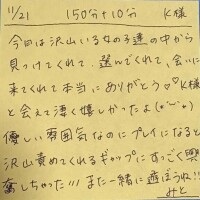 11/21 150分+10分 K様
今日は沢山いる女の子達の中から
見つけてくれて、選んでくれて、会いに
来てくれて本当にありがとう♡♡K様
と会えて凄く嬉しかったよ(*˘︶˘*)
優しい雰囲気なのにプレイになると
沢山責めてくれるギャップにすっごく興
奮しちゃった!!! また一緒に遊ぼうね!!
みと